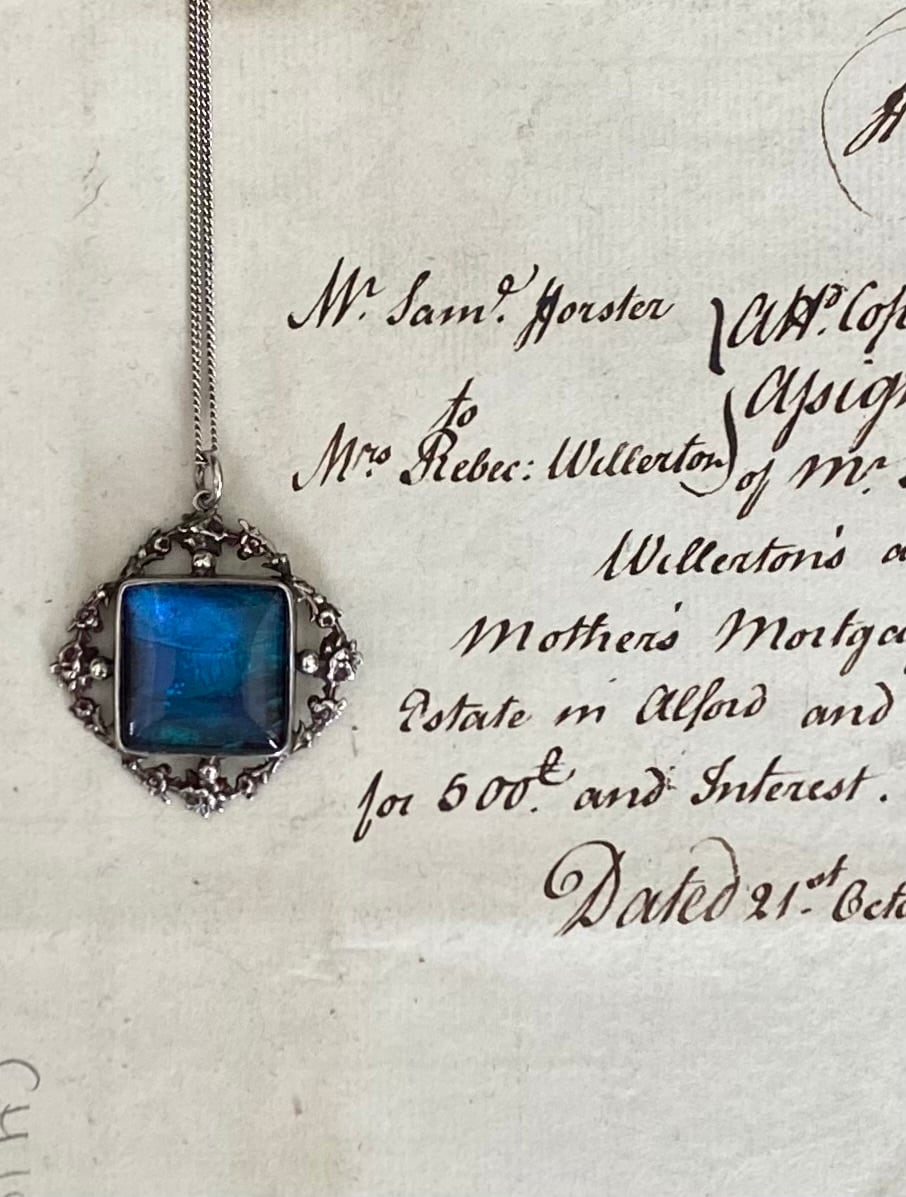 Mr. Sam.l Forster
to
Mrs Rebec: Willerton
Attd. Cop
Assign
of Mr.
Willerton's a
Mother's Mortga
Estate in Alford and
for 500£. and Interest.
Dated 21.st Octo